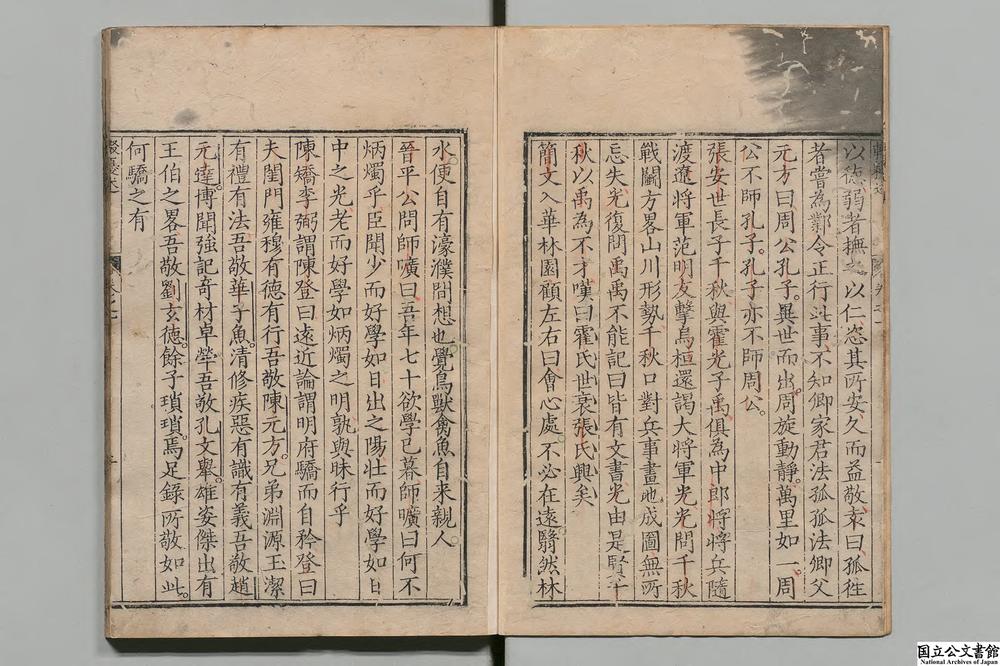 以德弱者撫之以仁恣其所安久而益敬袁曰孤徃
者嘗為鄴令正行此事不知卿家君法孤孤法卿父
元方曰周公孔子異世而出周旋動静萬里如一周
公不師孔子孔子亦不師周公
張安世長子千秋與霍光子禹俱為中郎將將兵隨
渡遼將軍范明友擊烏桓還謁大將軍光光問千秋
戰鬭方畧山川形勢千秋口對兵事畫地成圖無所
忘失光復問禹禹不能記曰皆有文書光由是賢千
秋以禹為不才嘆曰霍氏世衰張氏興矣
簡文入華林園顧左右曰會心處不必在遠翳然林
水便自有濠濮間想也覺鳥獸禽魚自来親人
晉平公問師曠曰吾年七十欲學已暮師曠曰何不
炳燭乎臣聞少而好學如日出之陽壮而好學如日
中之光老而好學如炳燭之明孰與昧行乎
陳矯李弼謂陳登曰遠近論謂明府驕而自矜登曰
夫閨門雍穆有德有行吾敬陳元方兄弟淵源玉潔
有禮有法吾敬華子魚清修疾惡有識有義吾敬趙
元達博聞強記竒材卓犖吾敬孔文舉雄姿傑出有
王伯之畧吾敬劉玄德餘子瑣瑣焉足錄所敬如此
何驕之有
国立公文書館
National Archives of Japan